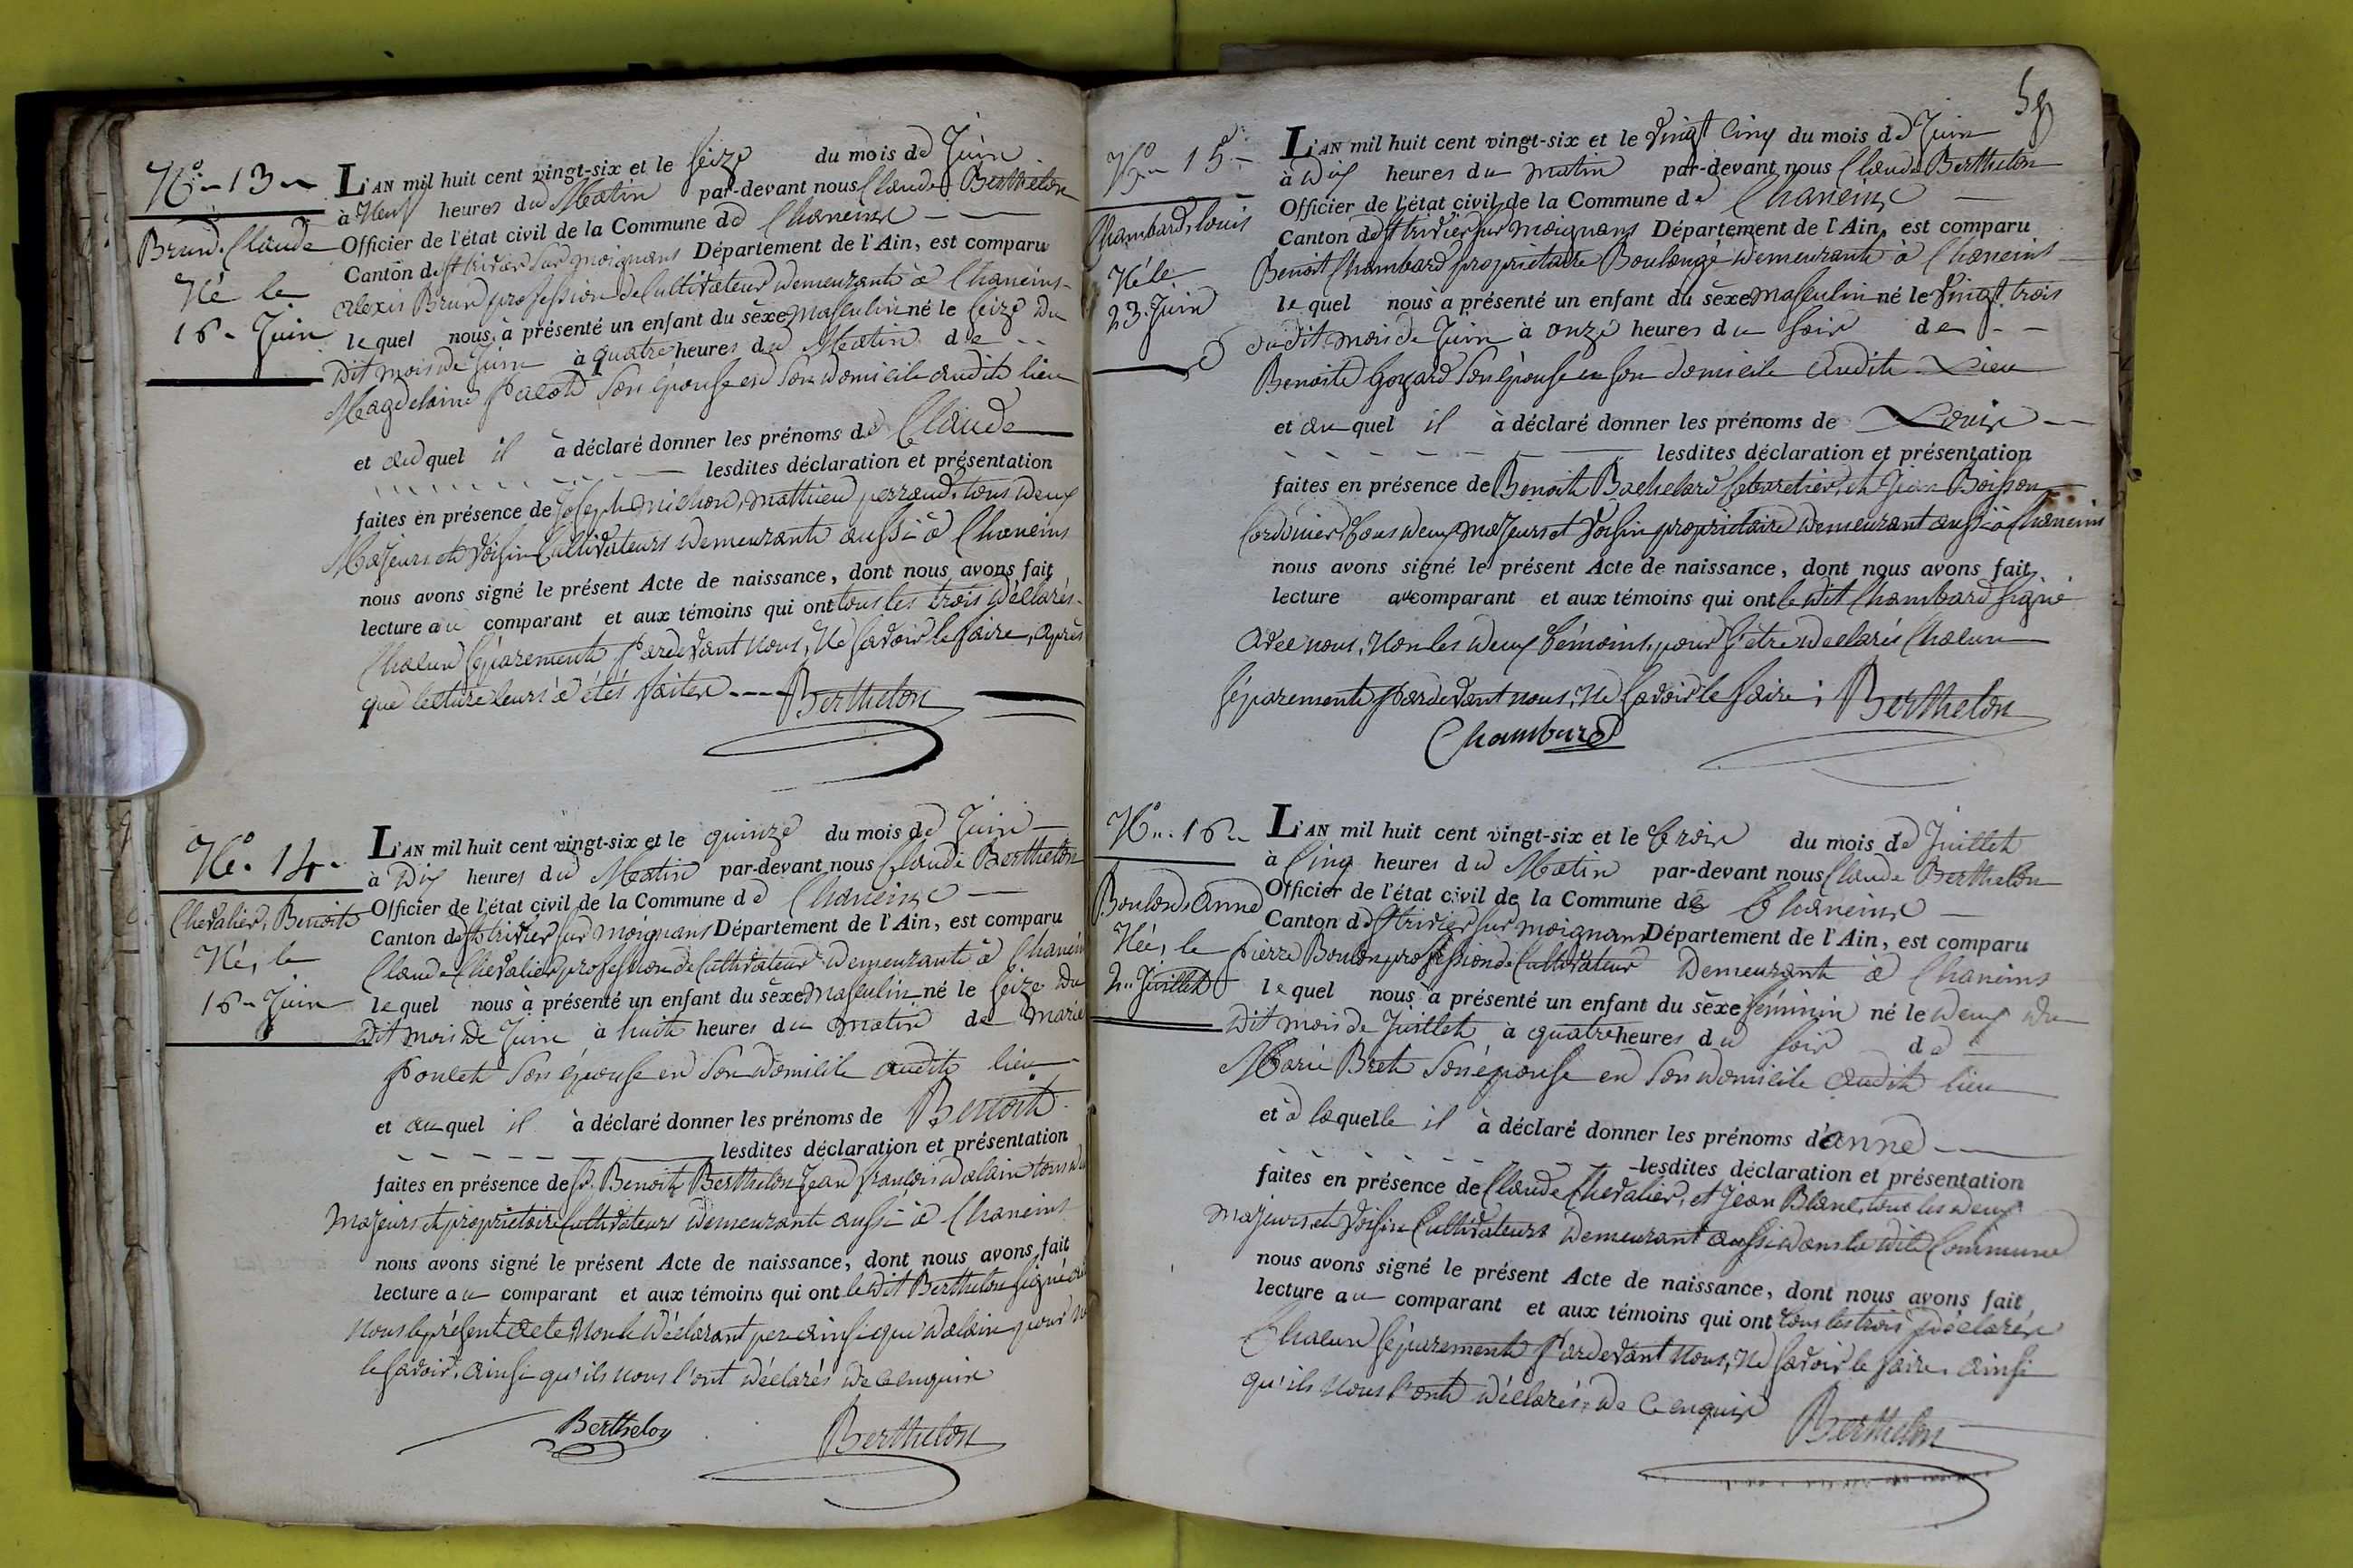 N.° 13
Brund. Claude
Né le
16 - Juin
L'AN mil huit cent vingt-six et le seize du mois de Juin
à Neuf heures du Matin par-devant nous Claude Berthelon
Officier de l'état civil de la Commune de Chaneins
Canton de St trivier sur moignans Département de l'Ain, est comparu
alexis Brun profession de Cultivateur demeurante à Chaneins
lequel nous à présenté un enfant du sèxe masculin né le seize du
dit mois de Juin à quatre heures du Matin de
Magdelaine son épouse en son domicile audite lieu
et auquel il à déclaré donner les prénoms de Claude
lesdites déclaration et présentation
faites en présence de Joseph michon, mathieu perraud, tous deux
Majeurs et voisin Cultivateurs demeurante aussi à Chaneins
nous avons signé le présent Acte de naissance, dont nous avons fait
lecture au comparant et aux témoins qui ont tous les trois déclarés
Chacun séparemente pardevant nous, Ne savoir le faire, après
que lecture leurs a étés faite
Berthelon
N.° 14
Chevalier, Benoite
Né, le
16 - Juin
L'AN mil huit cent vingt-six et le quinze du mois de Juin
à Dix heures du Matin par-devant nous Claude Berthelon
Officier de l'état civil de la Commune de Chaneins
Canton de St trivier sur moignans Département de l'Ain, est comparu
Claude Chevalier profession de Cultivateur demeurante à Chanein
lequel nous à présenté un enfant du sèxe masculin né le seize du
dit mois de Juin à huite heures du matin de marie
Poncet son épouse en son domicile audite lieu
et auquel il à déclaré donner les prénoms de Benoit
lesdites déclaration et présentation
faites en présence de Sr. Benoit Berthelon Jean francois dalain tous
majeurs et proprietaire Cultivateurs demeurante aussi à Chaneins
nous avons signé le présent Acte de naissance, dont nous avons fait
lecture au comparant et aux témoins qui ont le dit Berthelon signé
nous le présent acte Non le déclarant ainsi que dalain pour
le savoir, ainsi qu'ils nous l'ont déclarés de ce enquis
Berthelon Berthelon
58
N.° 15
Chambard, Louis
Né le
23. Juin
L'AN mil huit cent vingt-six et le Vingt Cinq du mois de Juin
à dix heures du matin par-devant nous Claude Berthelon
Officier de l'état civil de la Commune de Chaneins
Canton de St trivier sur moignans Département de l'Ain, est comparu
Benoit Chambard proprietaire Boulangé demeurante à Chaneins
lequel nous à présenté un enfant du sèxe masculin né le Vingt trois
du dit mois de Juin à onze heures du soir de
Benoite Goyard son épouse en son domicile audite Lieu
et auquel il à déclaré donner les prénoms de Louis
lesdites déclaration et présentation
faites en présence de Benoit Bachelard Cabaretier, et Jean Boisson
Cordonier tous deux majeurs et voisin proprietaire demeurant aussi à Chaneins
nous avons signé le présent Acte de naissance, dont nous avons fait
lecture au comparant et aux témoins qui ont le dit Chambard signé
avec nous, Non les deux témoins, pour s'etre declarés Chacun
séparemente pardevant nous, Ne savoir le faire ;
Berthelon
Chambard
N.° 16
Boulon, anne
Née, le
2 Juillet
L'AN mil huit cent vingt-six et le trois du mois de Juillet
à Cinq heures du Matin par-devant nous Claude Berthelon
Officier de l'état civil de la Commune de Chaneins
Canton de St trivier sur moignans Département de l'Ain, est comparu
pierre Boulon profession de Cultivateur demeurante à Chaneins
lequel nous à présenté un enfant du sèxe féminin né le deux du
dit mois de Juillet à quatre heures du soir de
Marie Bret son épouse en son domicile audite lieu
et à laquelle il à déclaré donner les prénoms d'anne
lesdites déclaration et présentation
faites en présence de Claude Chevalier, et Jean Blanc, tous les deux
majeurs et voisin Cultivateurs demeurant aussi dans la dite Commune
nous avons signé le présent Acte de naissance, dont nous avons fait
lecture au comparant et aux témoins qui ont tous les trois déclarés
Chacun séparemente pardevant nous, Ne savoir le faire, ainsi
qu'ils nous l'ont déclarés, de ce enquis
Berthelon